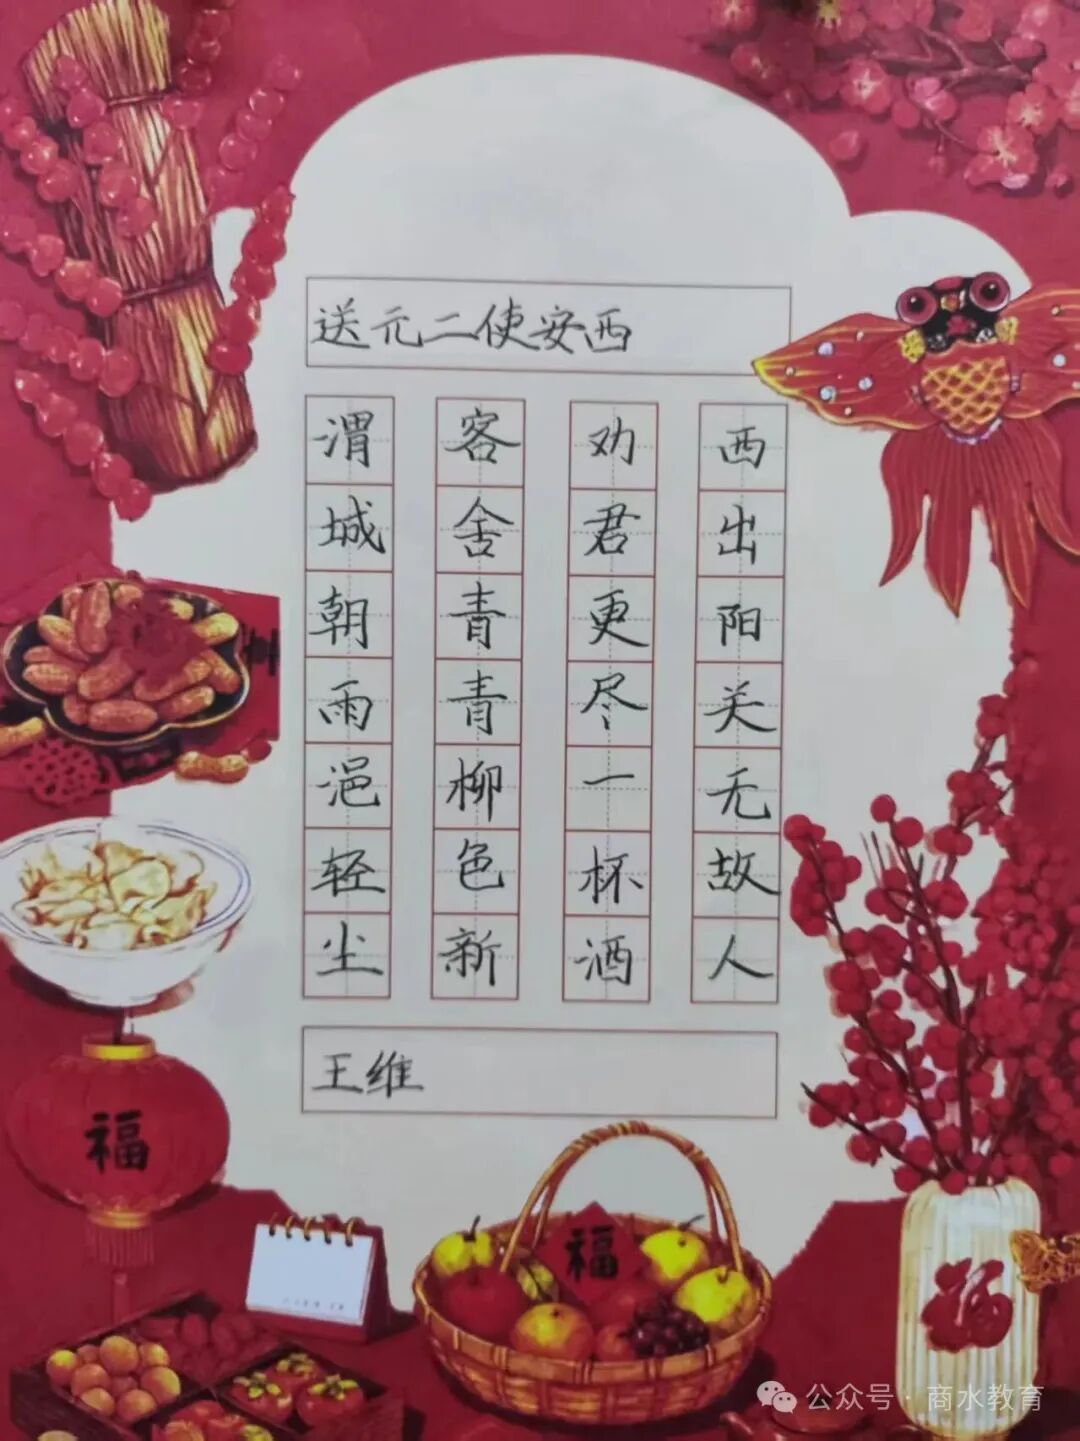 送元二使安西
渭城朝雨浥轻尘
客舍青青柳色新
劝君更尽一杯酒
西出阳关无故人
王维
福
福
福
公众号·商水教育